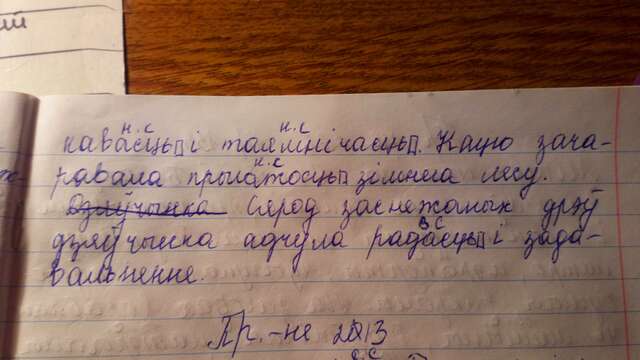 ий
н.с н.с
навасць і таямнічасць. Кацю зача-
н.с
равала прыгажосць зімняга лесу.
Дзяўчынка Сярод заснежаных дрэў
в с
дзяўчынка адчула радасць і зада-
вальненне.
Пр.-не 213
с с